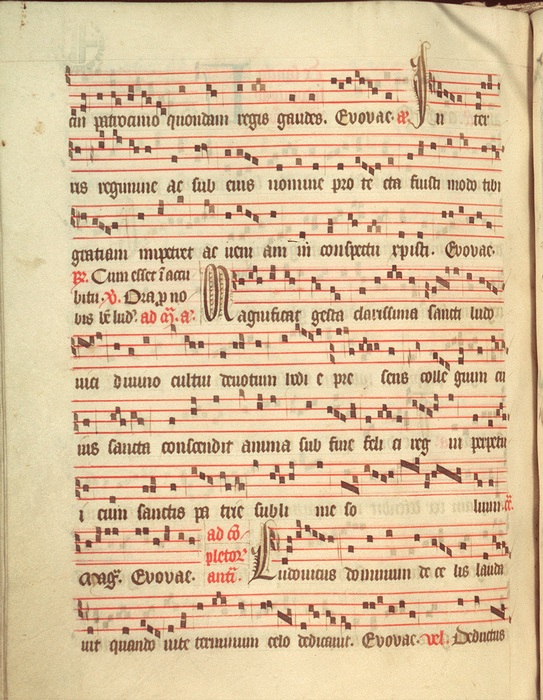 cui patrocinio quondam regis gaudes. Evovae. a. In ter
ris regimine ac sub eius nomine pro te eta fuisti modo tibi
gratiam impetret ac ueni am in conspectu xpisti. Evovae.
R. Cum esset i acu
bitu. V. Ora p no
bis be lud. ad m. a. Magnificat gesta clarissima sancti ludo
uici diuino cultui deuotum led i e pre sens colle gium cu
ius sancta conscendit anima sub fine feli ci reg ni perpetu
i cum sanctis pa tre subli me so lium. a.
Mag. Evovae. ad co
pletor
ant. Ludouicus dominum de ce lis lauda
uit quando uite terminum celo dedicauit. Evovae. vel. Deductus